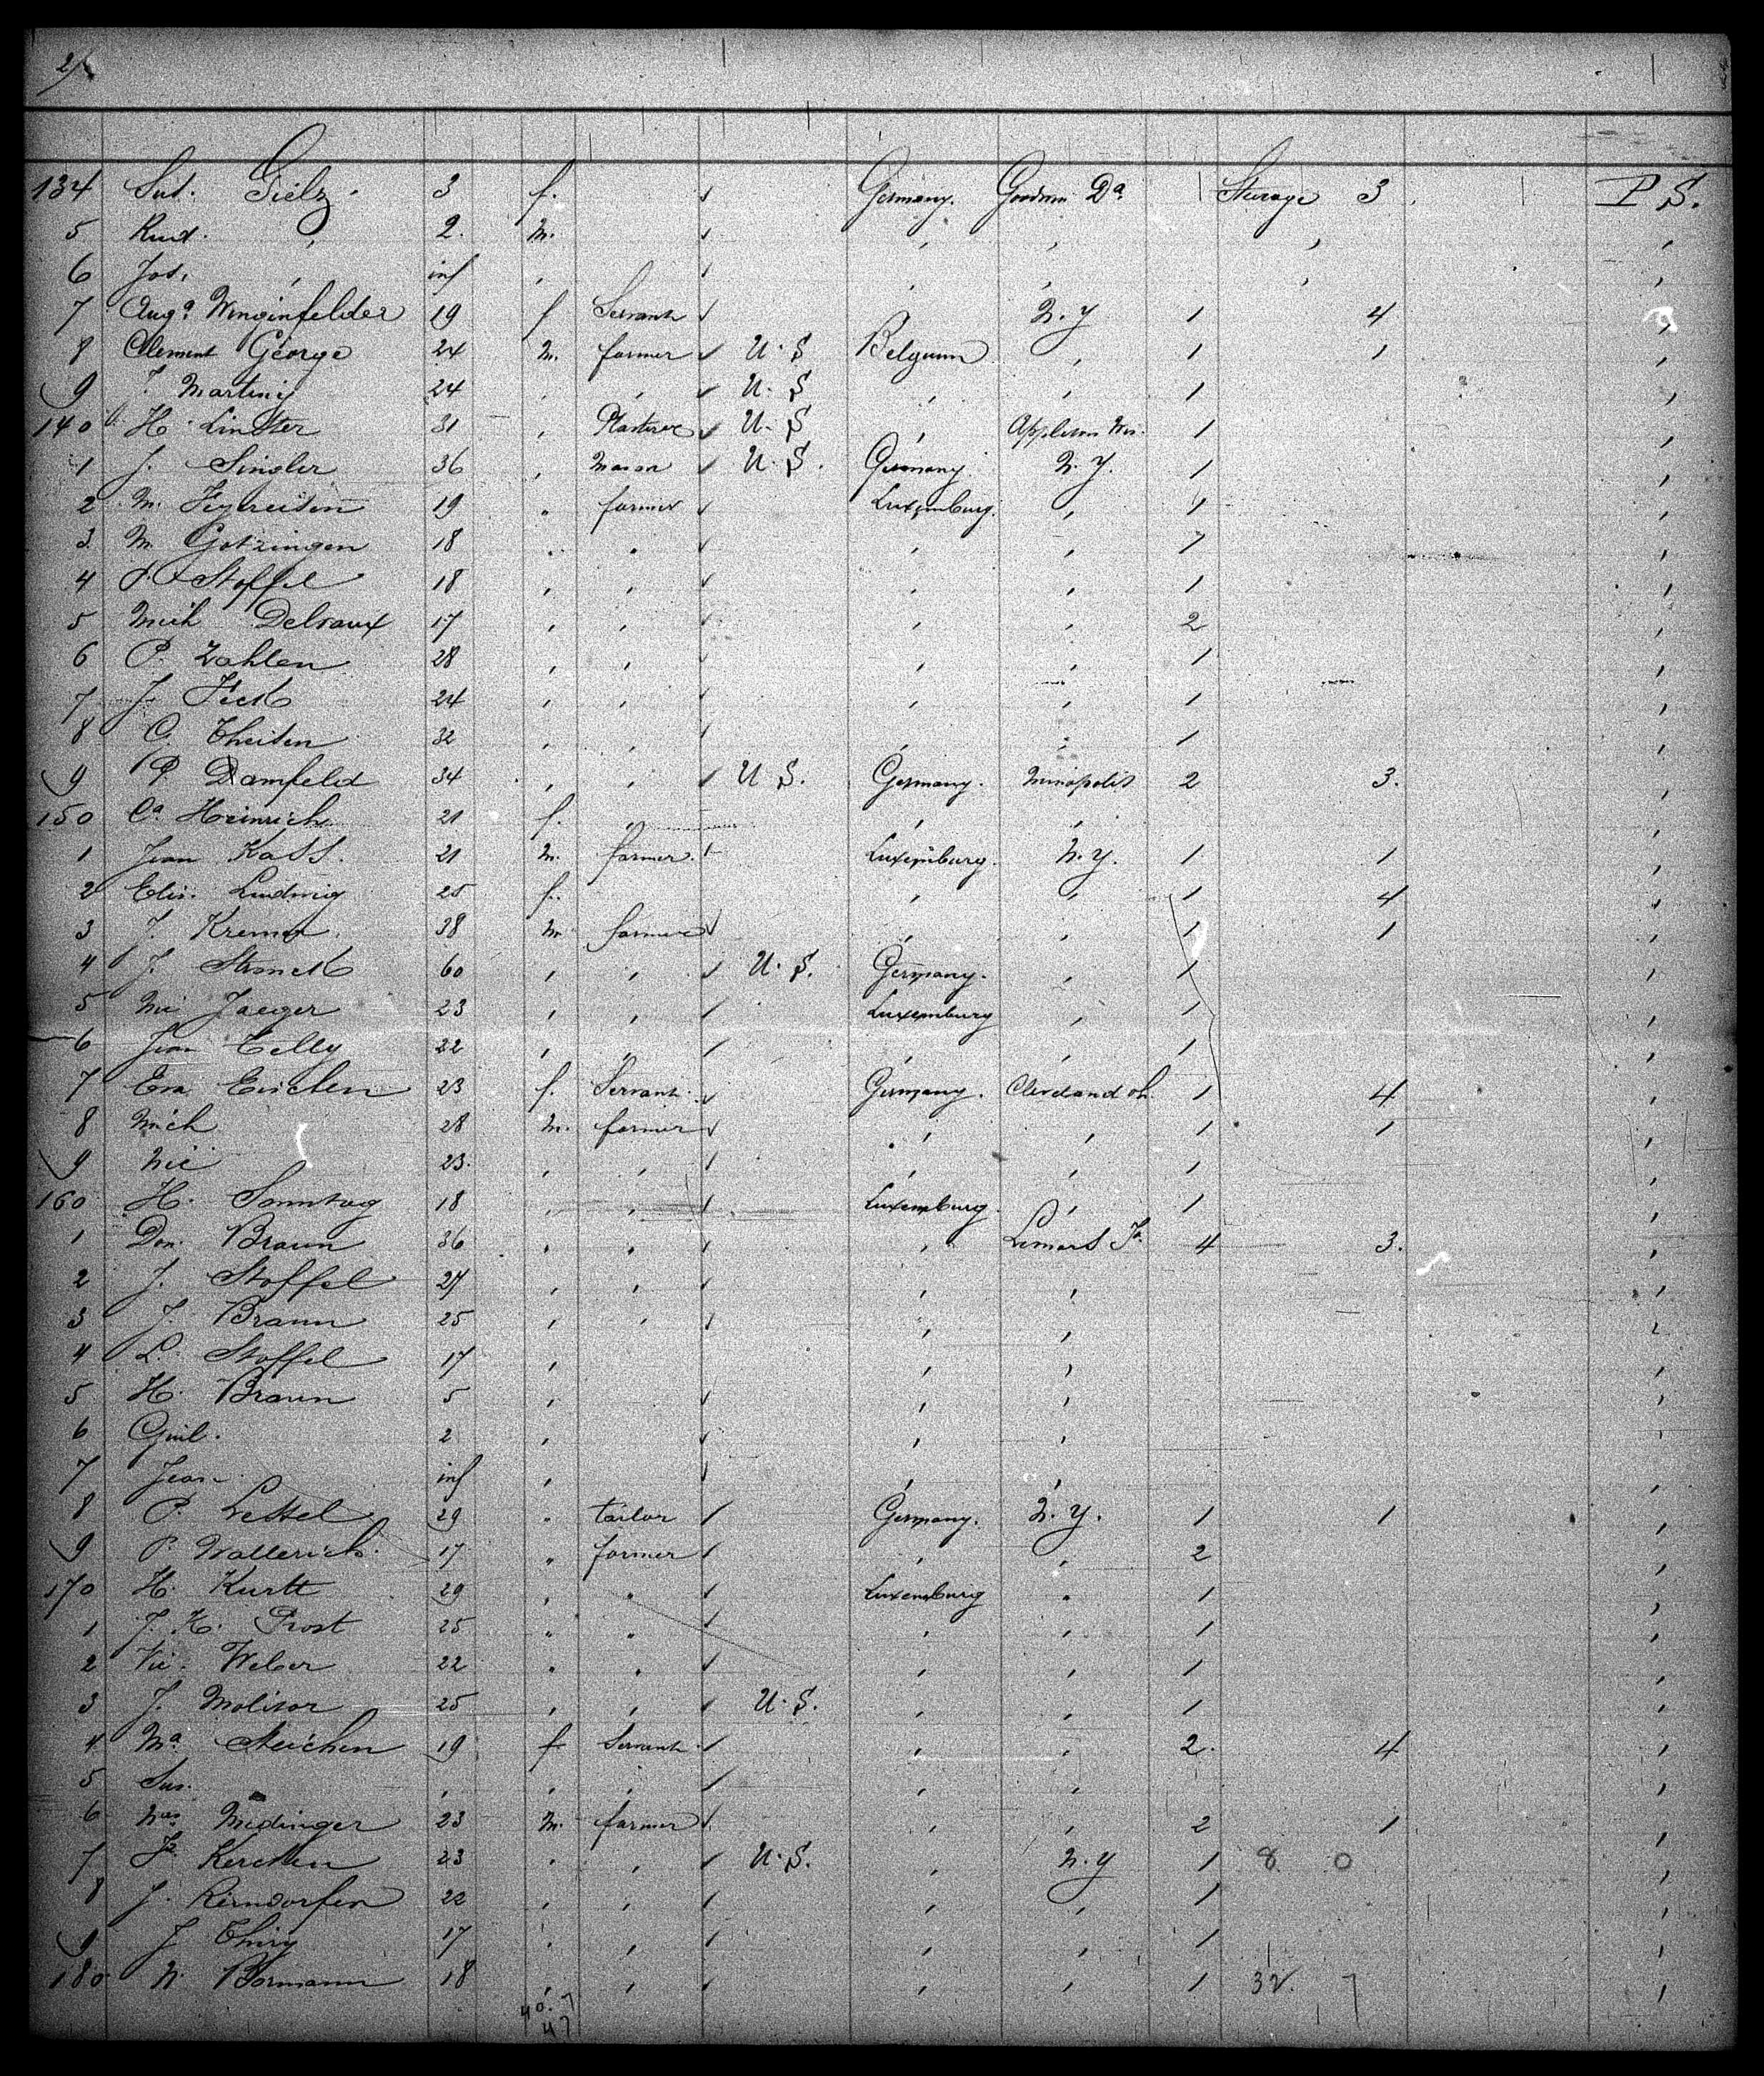 134 Sus. Gielz 3 f. Germany. Goodwin Da. 1 Sterage 3 P S.
5 Rud. , 2. M. , , , ,
6 Jos. , inf , , , , ,
7 Auga. Winginfelder 19 f Servant , N. Y 1 4 ,
8 Clement George 24 M. farmer U. S Belgium , 1 1 ,
9 J. Martiny 24 , , U. S , , 1 ,
140 H. Linster 31 , Plasterer U. S , Appleton Wis. 1 ,
1 J. Singler 36 , Mason U. S. Germany N. Y. 1 ,
2 M. 19 " farmer Luxemburg. , 1 ,
3. M. Gotzingen 18 " " , , 1 ,
4 P. Stoffel 18 , , , , 1 ,
5 Mich Delvaux 17 , , , , 2 ,
6 P. Zahlen 28 , , , , 1 ,
7 J. Feck 24 , , , , 1 ,
8 C. Theisen 32 , , , , 1 ,
9 P Damfeld 34 , , U S. Germany. Minapolis 2 3. ,
150 Ca. Heinrich 21 f. , , , ,
1 Jean Kass. 21 M. farmer. Luxemburg. N. Y. 1 1 ,
2 Elis. Ludwig 25 f. , , 1 4 ,
3 J. Kremer 38 M farmer , , 1 1 ,
4 J. 60 , , U. S. Germany. , 1 ,
5 Nic Jaeger 23 , , Luxemburg , 1 ,
6 Jean Celly 22 , , , , 1 ,
7 Eva Eirchen 23 f. Servant Germany. Cleveland oh. 1 4 ,
8 Mich 28 M. farmer , , 1 1 ,
9 Nic 23. , , , , 1 ,
160 H. Sonntag 18 , , Luxemburg , 1 ,
1 Dom. Braun 36 , " , Lemars Ja. 4 3. ,
2 J. Stoffel 27 , , , , ,
3 J. Braun 25 , , , , ,
4 L. Stoffel 17 , , , ,
5 H. Braun 5 , , , ,
6 Guil. 2 , , , ,
7 Jean inf , , , ,
8 P. Lettel 29 " tailor Germany. N. Y. 1 1 ,
9 P. Wallerich. 17 " farmer , , 2 ,
170 H. Kurtt 29 , " Luxemburg " 1 ,
1 J. H. Prost 25 " " , , 1 ,
2 Vic. Weber 22 " , , , 1 ,
3 J. Molitor 25 , , U. S. , , 1 ,
4 Ma. Steichen 19 f Servant , , 2. 4 ,
5 Sus. , , , , , ,
6 Nas. Medinger 23 M. farmer , , 2 1 ,
7 Kerchen 23 " , U. S. , N. Y 1 8 0 ,
8 J. Rerndorfer 22 , , , , 1 ,
9 J Thiry 17 , , , , 1 ,
180 N. Bormann 18 , , , , 1 32. 7 ,
40. 7
47